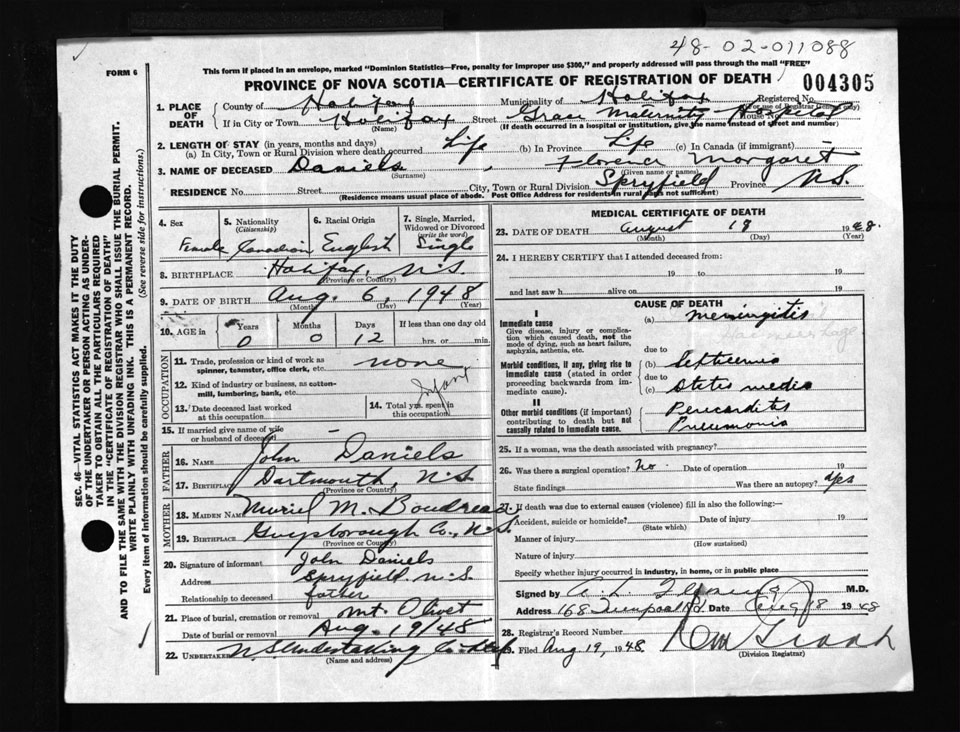 48-02-011088
FORM 6
This form if placed in an envelope, marked "Dominion Statistics—Free, penalty for improper use $300," and properly addressed will pass through the mail "FREE"
PROVINCE OF NOVA SCOTIA—CERTIFICATE OF REGISTRATION OF DEATH
004305
1. PLACE OF DEATH County of Halifax Municipality of Halifax Registered No.
(For use of Registrar General only)
If in City or Town Halifax Street Grace Maternity Hospital House No.
(Name) (If death occurred in a hospital or institution, give the name instead of street and number)
2. LENGTH OF STAY (in years, months and days)
(a) In City, Town or Rural Division where death occurred Life (b) In Province Life (c) In Canada (if immigrant)
3. NAME OF DECEASED Daniels, Florence Margaret
(Surname) (Given name or names)
RESIDENCE No. Street City, Town or Rural Division Spryfield Province N.S.
(Residence means usual place of abode. Post Office Address for residents in rural parts not sufficient)
SEC. 46—VITAL STATISTICS ACT MAKES IT THE DUTY
OF THE UNDERTAKER OR PERSON ACTING AS UNDER-
TAKER TO OBTAIN ALL THE PARTICULARS REQUIRED
IN THE "CERTIFICATE OF REGISTRATION OF DEATH"
AND TO FILE THE SAME WITH THE DIVISION REGISTRAR WHO SHALL ISSUE THE BURIAL PERMIT.
WRITE PLAINLY WITH UNFADING INK. THIS IS A PERMANENT RECORD.
Every item of information should be carefully supplied. (See reverse side for instructions.)
4. Sex Female
5. Nationality (Citizenship) Canadian
6. Racial Origin English
7. Single, Married, Widowed or Divorced (write the word) Single
8. BIRTHPLACE Halifax, N.S.
(Province or Country)
9. DATE OF BIRTH Aug. 6, 1948
(Month) (Day) (Year)
10. AGE in Years 0 Months 0 Days 12 If less than one day old hrs. or min.
OCCUPATION
11. Trade, profession or kind of work as spinner, teamster, office clerk, etc. none
12. Kind of industry or business, as cotton-mill, lumbering, bank, etc. Infant
13. Date deceased last worked at this occupation
14. Total yrs. spent in this occupation
15. If married give name of wife or husband of deceased —
FATHER
16. NAME John Daniels
17. BIRTHPLACE Dartmouth, N.S.
(Province or Country)
MOTHER
18. MAIDEN NAME Muriel M. Boudreau
19. BIRTHPLACE Guysborough Co., N.S.
(Province or Country)
20. Signature of informant John Daniels
Address Spryfield, N.S.
Relationship to deceased father
21. Place of burial, cremation or removal Mt. Olivet
Date of burial or removal Aug. 19/48
22. UNDERTAKER N.S. Undertaking Co.
(Name and address)
MEDICAL CERTIFICATE OF DEATH
23. DATE OF DEATH August 18 1948.
(Month) (Day) (Year)
24. I HEREBY CERTIFY that I attended deceased from:
19 to 19
and last saw h alive on 19
CAUSE OF DEATH
I
Immediate cause (a) Meningitis
Give disease, injury or complication which caused death, not the mode of dying, such as heart failure, asphyxia, asthenia, etc.
due to
Morbid conditions, if any, giving rise to immediate cause (stated in order proceeding backwards from immediate cause). (b) Septicemia
due to
(c) Otitis media
II
Other morbid conditions (if important) contributing to death but not causally related to immediate cause. Pericarditis
Pneumonia
25. If a woman, was the death associated with pregnancy?
26. Was there a surgical operation? No. Date of operation 19
State findings Was there an autopsy? yes
27. If death was due to external causes (violence) fill in also the following:
Accident, suicide or homicide? Date of injury 19
(State which)
Manner of injury
(How sustained)
Nature of injury
Specify whether injury occurred in industry, in home, or in public place
Signed by A. L. M.D.
Address 168 Date Aug 18 1948
28. Registrar's Record Number
29. Filed Aug 19, 1948.
(Division Registrar)